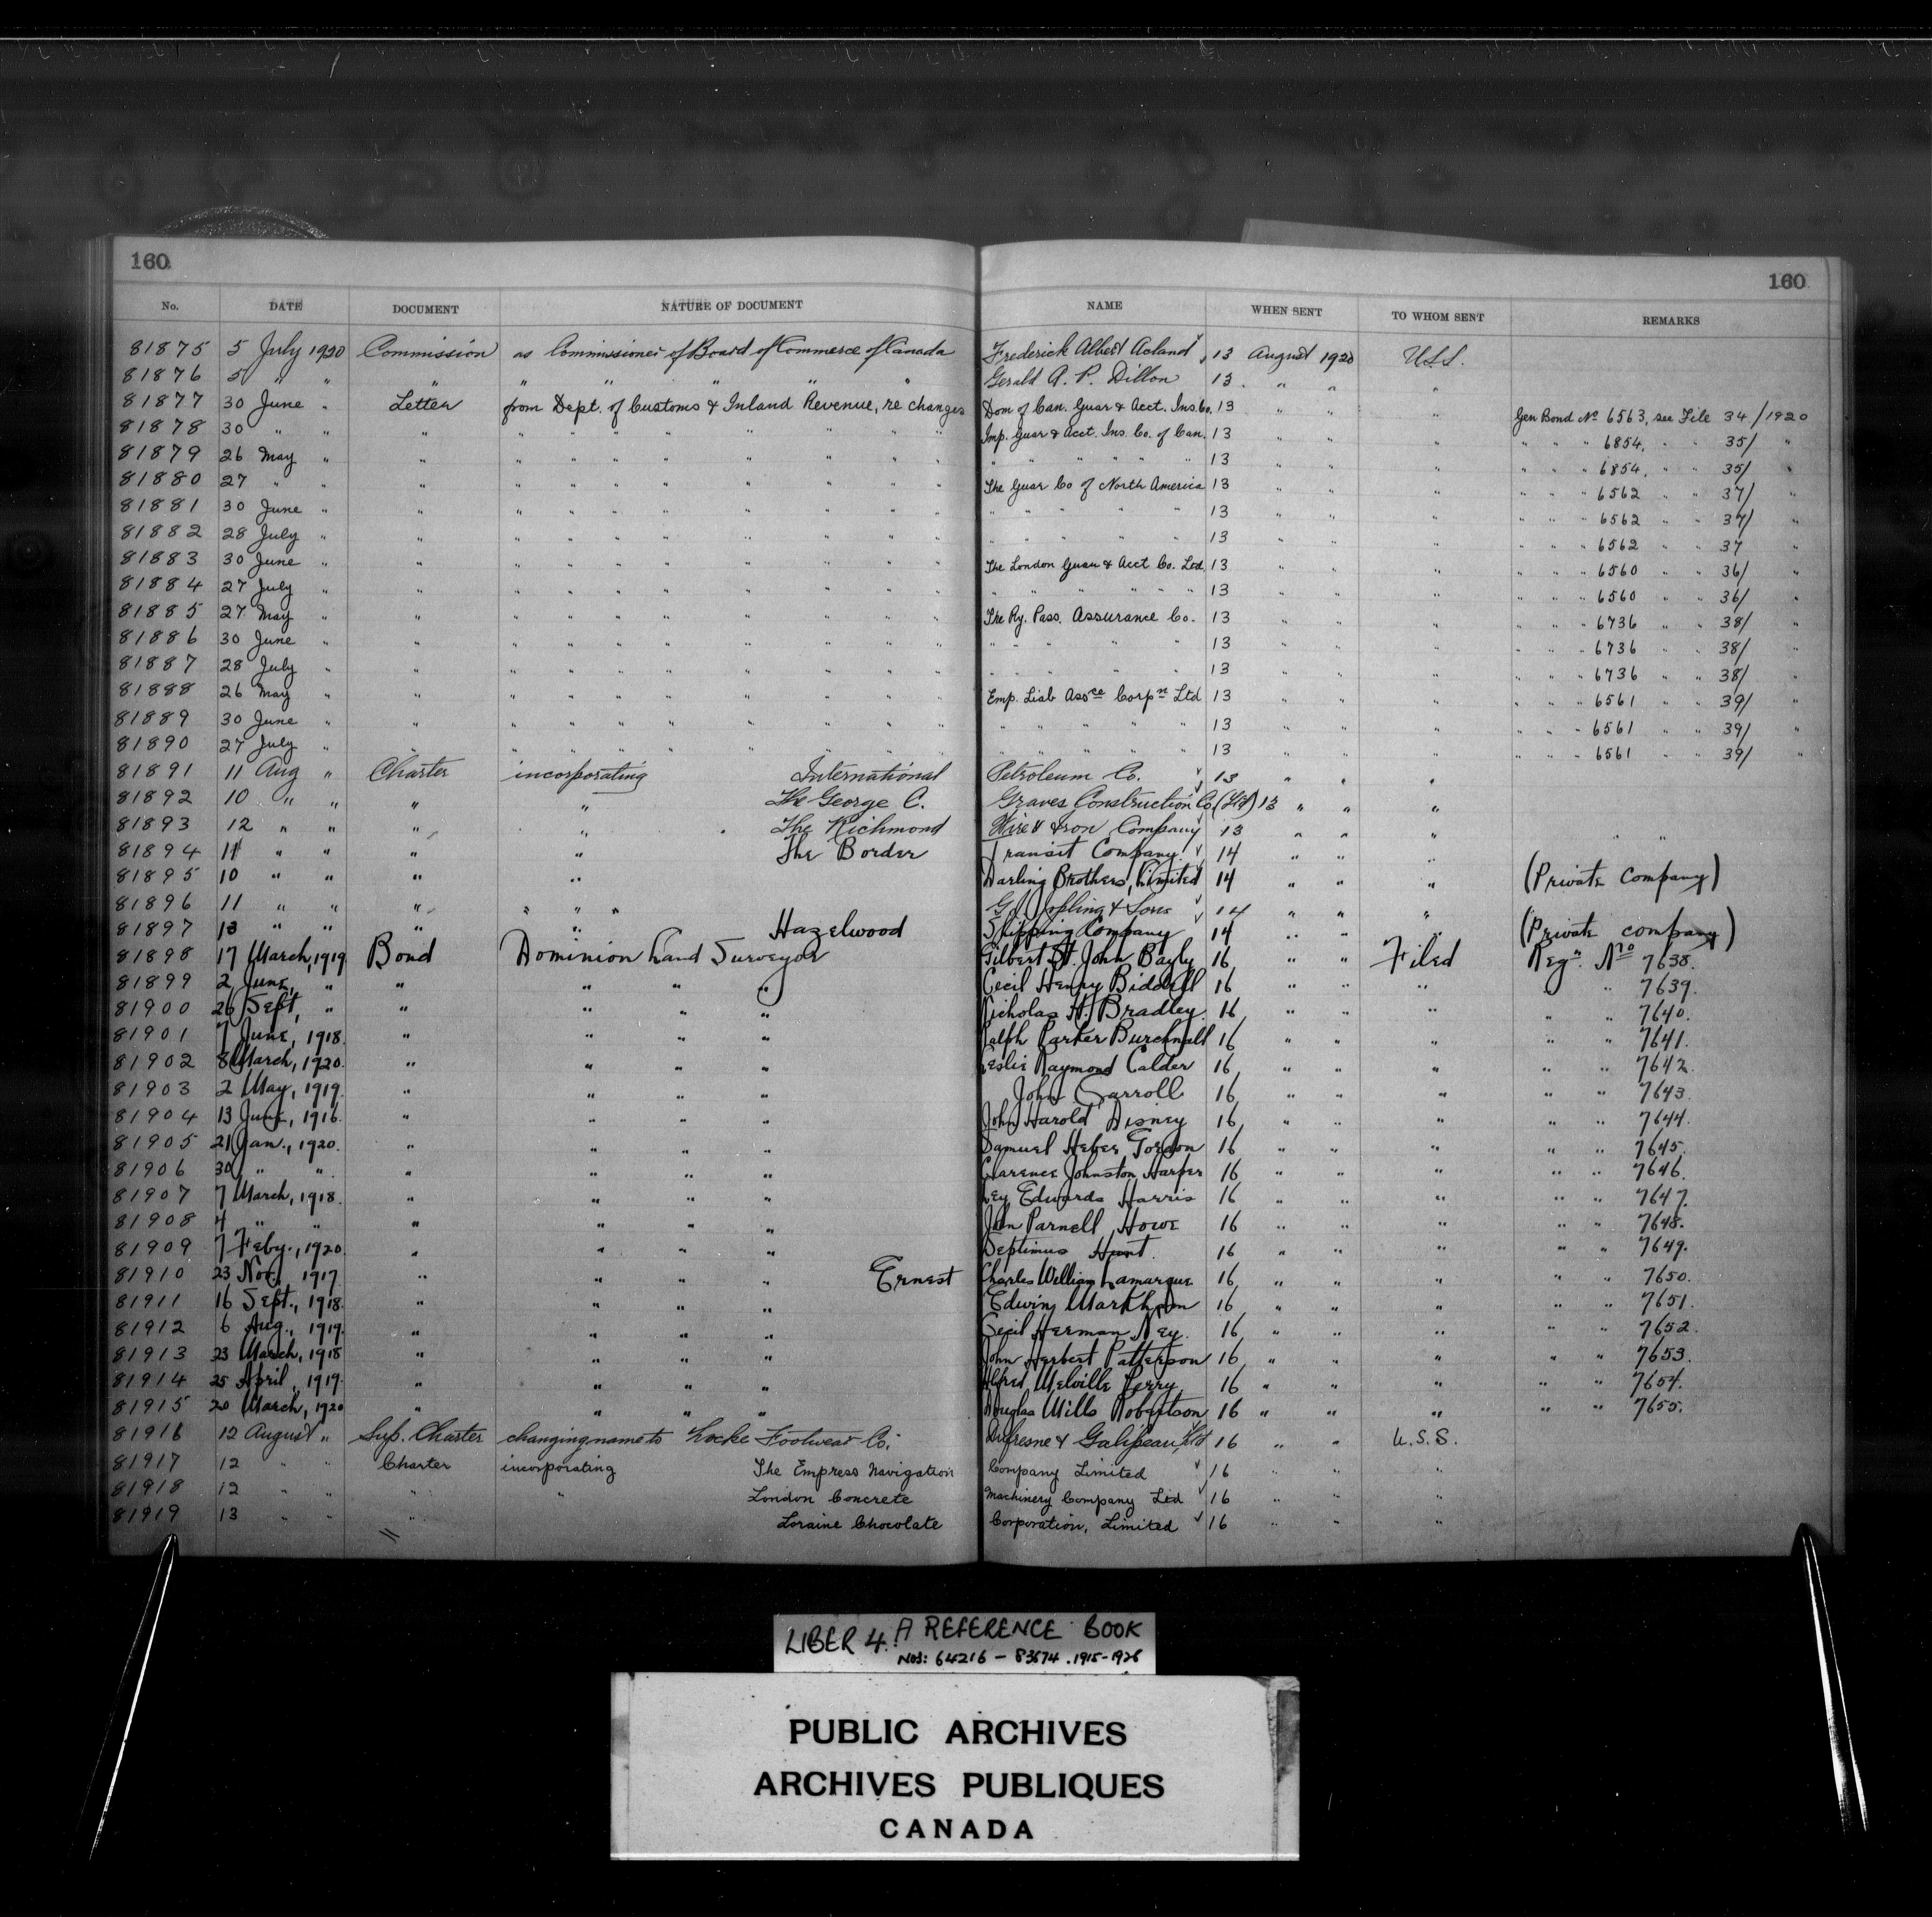 160
160
No. DATE DOCUMENT NATURE OF DOCUMENT NAME WHEN SENT TO WHOM SENT REMARKS
81875 5 July 1920 Commission as Commissioner of Board of Commerce of Canada Frederick Albert Acland 13 August 1920 U.S.S.
81876 5 " " " " " " " " Gerald A. P. Dillon 13 " " "
81877 30 June " Letter from Dept. of Customs & Inland Revenue, re changes Dom of Can. Guar & Acct. Ins. Co. 13 " " " Gen Bond No 6563, see File 34/1920
81878 30 " " " " " " " " " " " Imp. Guar & Acct. Ins. Co. of Can. 13 " " " " " " 6854 " " 35/ "
81879 26 May " " " " " " " " " " " " " " " " 13 " " " " " " 6854 " " 35/ "
81880 27 " " " " " " " " " " " The Guar Co of North America 13 " " " " " " 6562 " " 37/ "
81881 30 June " " " " " " " " " " " " " " " 13 " " " " " " 6562 " " 37/ "
81882 28 July " " " " " " " " " " " " " " " 13 " " " " " " 6562 " " 37 "
81883 30 June " " " " " " " " " " The London Guar & Acct Co. Ltd 13 " " " " " " 6560 " " 36/ "
81884 27 July " " " " " " " " " " " " " " " " 13 " " " " " " 6560 " " 36/ "
81885 27 May " " " " " " " " " " The Ry. Pass. Assurance Co. 13 " " " " " " 6736 " " 38/ "
81886 30 June " " " " " " " " " " " " " " " 13 " " " " " " 6736 " " 38/ "
81887 28 July " " " " " " " " " " " " " " " 13 " " " " " " 6736 " " 38/ "
81888 26 May " " " " " " " " " " Emp. Liab Assce Corpn Ltd 13 " " " " " " 6561 " " 39/ "
81889 30 June " " " " " " " " " " " " " " " 13 " " " " " " 6561 " " 39/ "
81890 27 July " " " " " " " " " " " " " " " 13 " " " " " " 6561 " " 39/ "
81891 11 Aug " Charter incorporating International Petroleum Co. 13 " " "
81892 10 " " " " The George C. Graves Construction Co (Ltd) 13 " " "
81893 12 " " " " The Richmond Wire & Iron Company 13 " " " " "
81894 11 " " " " The Border Transit Company 14 " " "
81895 10 " " " " Darling Brothers, Limited 14 " " " (Private Company)
81896 11 " " " " " " G. J. Jopling & Sons 14 " " "
81897 13 " " " " Hazelwood Shipping Company 14 " " " (Private company)
81898 17 March, 1919 Bond Dominion Land Surveyor Gilbert St. John Bayly 16 " " Filed Regn. No 7638.
81899 2 June, " " " " " Cecil Henry Biddell 16 " " " " 7639.
81900 26 Sept, " " " " " Nicholas H. Bradley 16 " " " " " 7640.
81901 7 June, 1918. " " " " Ralph Parker Burchnall 16 " " " " " 7641.
81902 8 March, 1920. " " " " Leslie Raymond Calder 16 " " " " " 7642.
81903 2 May, 1919. " " " " John Carroll 16 " " " " " 7643.
81904 13 June, 1916. " " " " John Harold Disney 16 " " " " " 7644.
81905 21 Jan., 1920. " " " " Samuel Heber 16 " " " " " 7645.
81906 30 " " " " " " Clarence Johnston Harper 16 " " " " " 7646.
81907 7 March, 1918. " " " " Ley Edwards Harris 16 " " " " " 7647.
81908 4 " " " " " " John Parnell Howe 16 " " " " " 7648.
81909 7 Feby., 1920 " " " " Septimus Hunt. 16 " " " " " 7649.
81910 23 Nov. 1917. " " " " Ernest Charles William Lamarque 16 " " " " " 7650.
81911 16 Sept., 1918. " " " " Edwin Markham 16 " " " " " 7651.
81912 6 Aug., 1919. " " " " Cecil Herman Ney. 16 " " " " " 7652.
81913 23 March, 1918 " " " " John Herbert Patterson 16 " " " " " 7653.
81914 25 April, 1919. " " " " Alfred Melville Perry 16 " " " " " 7654.
81915 20 March, 1920 " " " " Douglas Mills Robertson 16 " " " " " 7655.
81916 12 August " Sup. Charter changing name to Locke Footwear Co. Dufresne & Galipeau, Ltd 16 " " U.S.S.
81917 12 " " Charter incorporating The Empress Navigation Company Limited 16 " " "
81918 12 " " " " London Concrete Machinery Company Ltd 16 " " "
81919 13 " " " Loraine Chocolate Corporation, Limited 16 " " "
LIBER 4. A REFERENCE BOOK
NOS: 64216 - 83674. 1915-1926
PUBLIC ARCHIVES
ARCHIVES PUBLIQUES
CANADA